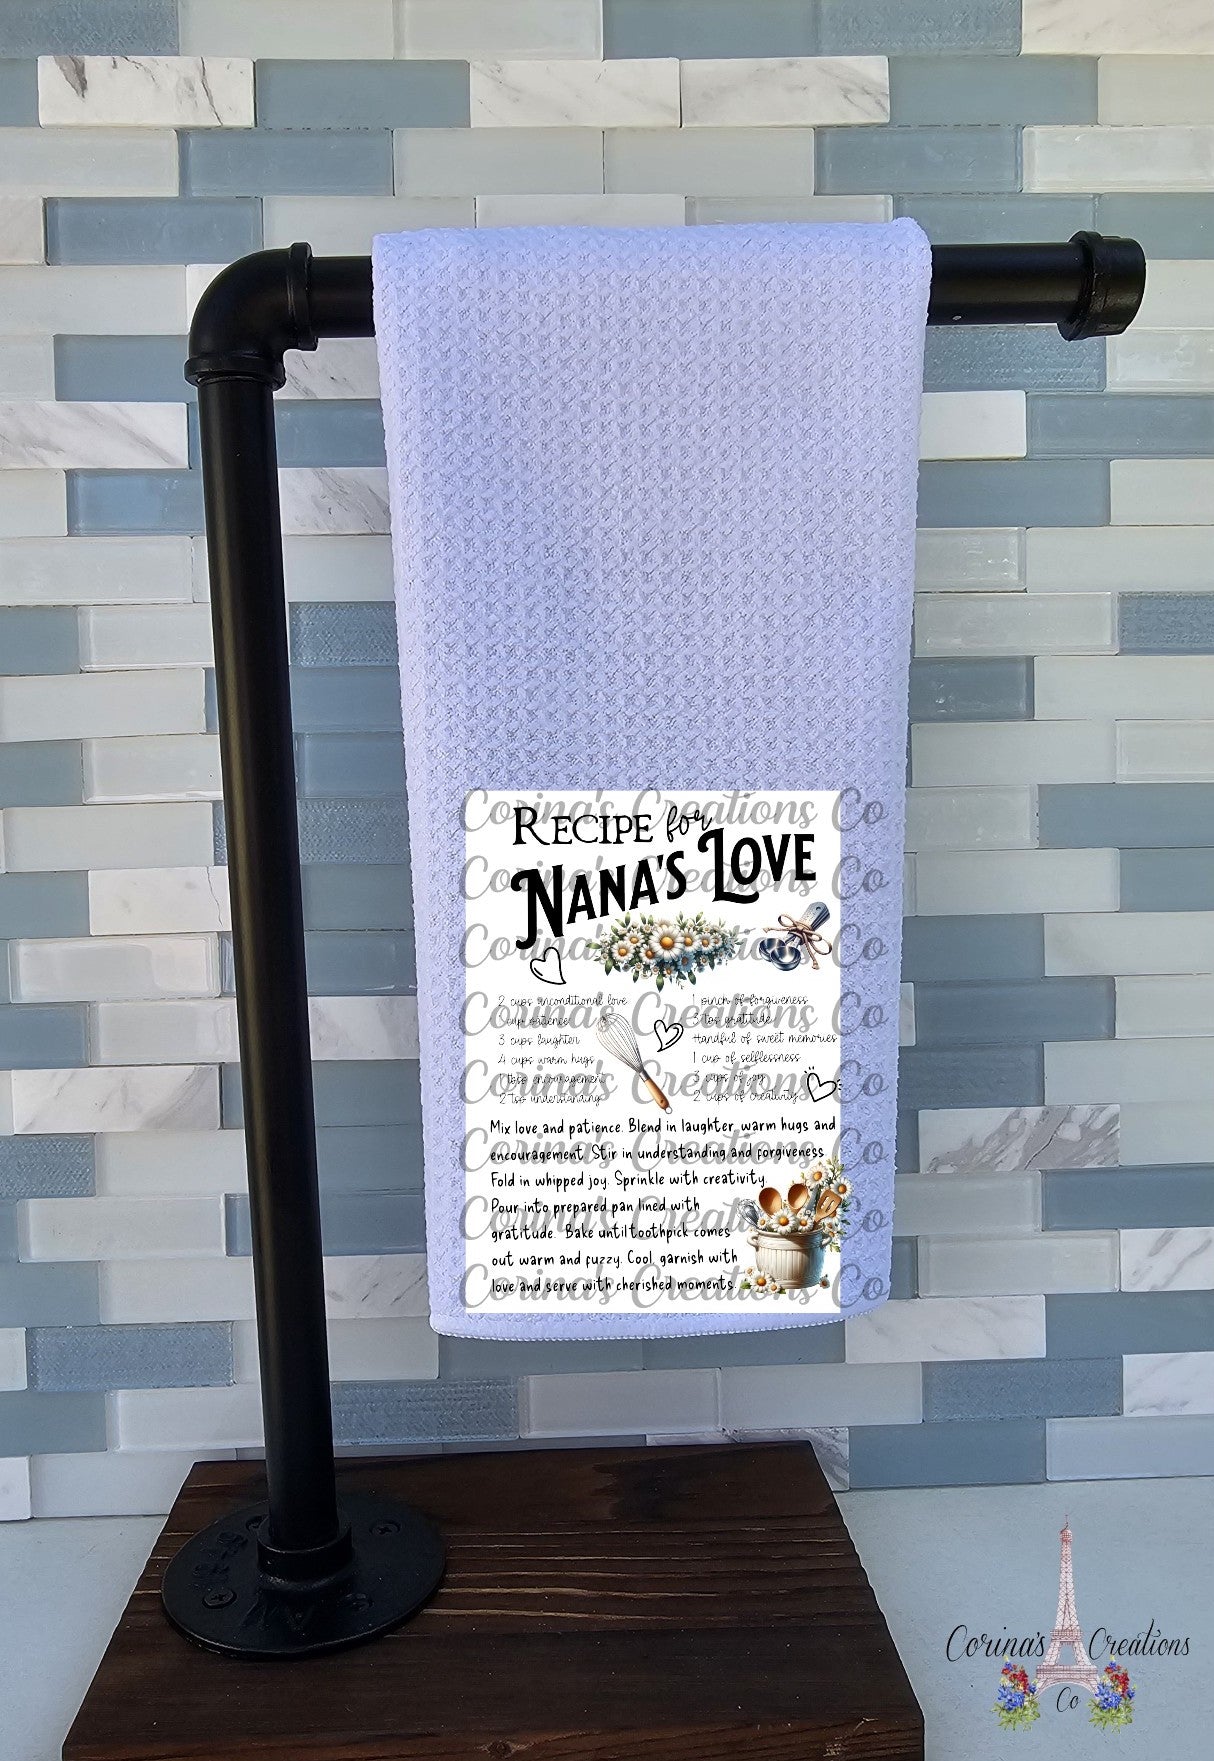 RECIPE for
NANA'S LOVE
2 cups unconditional love
1 cup patience
3 cups laughter
4 cups warm hugs
1 tbls encouragement
2 tsp understanding
1 pinch of forgiveness
3 tbs gratitude
Handful of sweet memories
1 cup of selflessness
3 cups of joy
2 cups of creativity
Mix love and patience. Blend in laughter, warm hugs and
encouragement. Stir in understanding and forgiveness.
Fold in whipped joy. Sprinkle with creativity.
Pour into prepared pan lined with
gratitude. Bake until toothpick comes
out warm and fuzzy. Cool, garnish with
love and serve with cherished moments.
Corina's Creations Co
Corina's Creations Co
Corina's Creations Co
Corina's Creations Co
Corina's Creations Co
Corina's Creations Co
Corina's Creations Co
Corina's Creations Co
Corina's Creations
Co